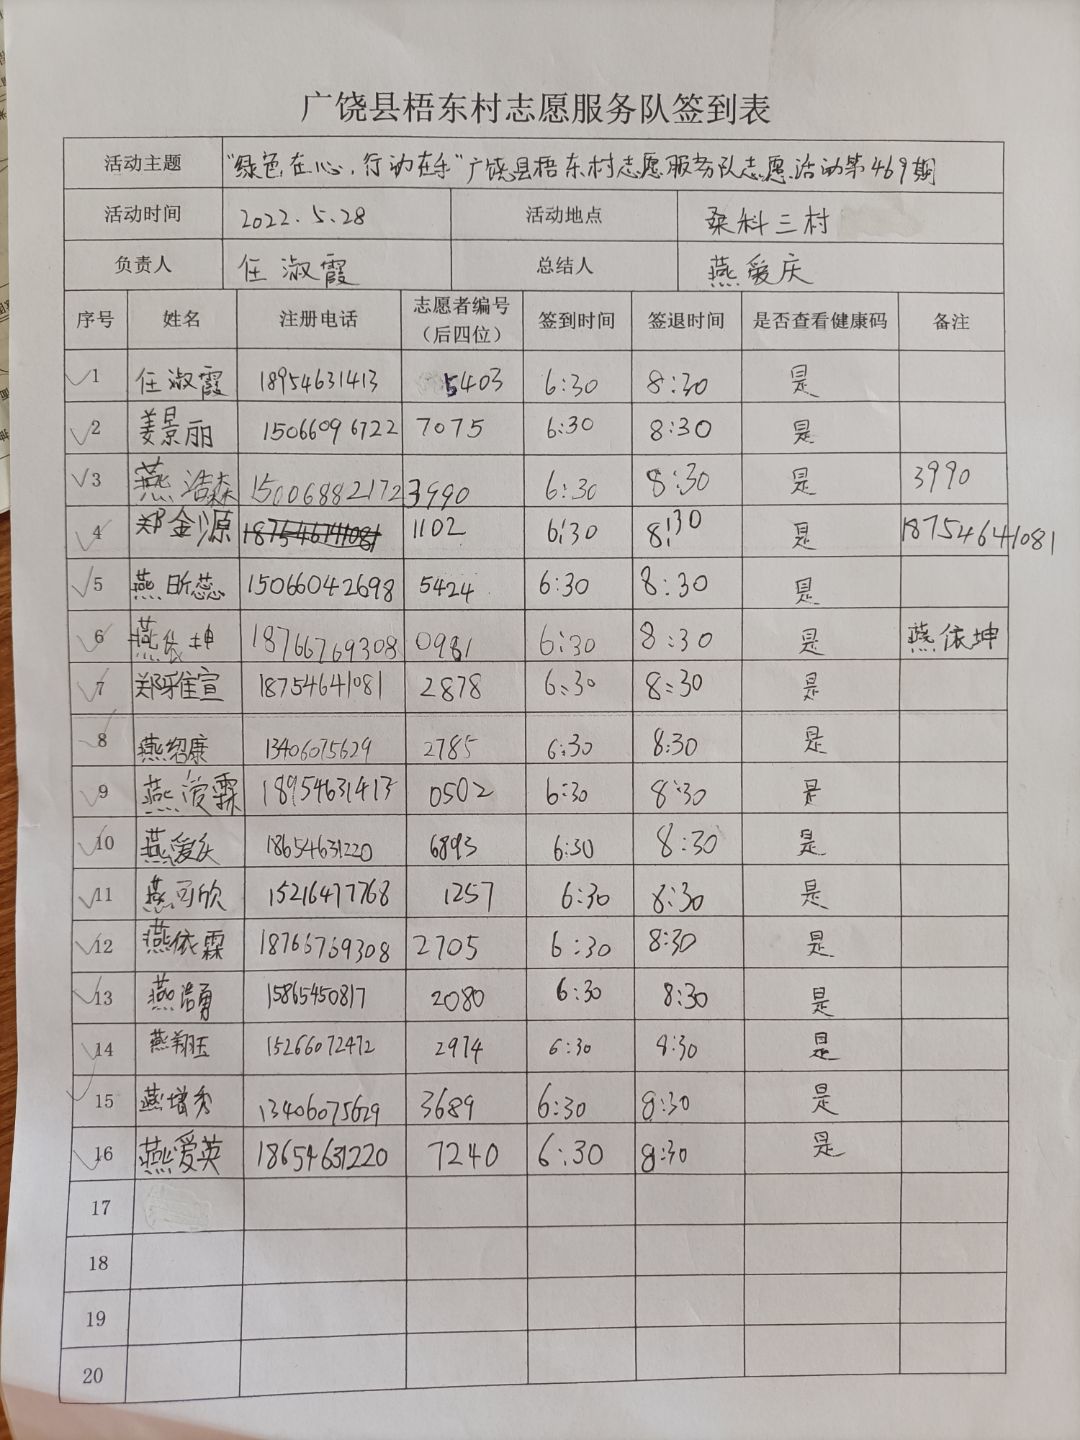 广饶县梧东村志愿服务队签到表
活动主题 "绿色在心,行动在手"广饶县梧东村志愿服务队志愿活动第469期
活动时间 2022.5.28 活动地点 桑科三村
负责人 任淑霞 总结人 燕爱庆
序号 姓名 注册电话 志愿者编号(后四位) 签到时间 签退时间 是否查看健康码 备注
1 任淑霞 18954631413 5403 6:30 8:30 是
2 姜景丽 15066096722 7075 6:30 8:30 是
3 燕浩森 15006882172 3990 6:30 8:30 是 3990
4 郑金源 18754641081 1102 6:30 8:30 是 18754641081
5 燕昕蕊 15066042698 5424 6:30 8:30 是
6 燕依坤 18766769308 0981 6:30 8:30 是 燕依坤
7 郑雅宣 18754641081 2878 6:30 8:30 是
8 燕绍康 13406075629 2785 6:30 8:30 是
9 燕爱霖 18954631413 0502 6:30 8:30 是
10 燕爱庆 18654631220 6893 6:30 8:30 是
11 燕可欣 15216477768 1257 6:30 8:30 是
12 燕依霖 18766769308 2705 6:30 8:30 是
13 燕浩勇 15865450817 2080 6:30 8:30 是
14 燕翔玉 15266072472 2974 6:30 8:30 是
15 燕增秀 13406075629 3689 6:30 8:30 是
16 燕爱英 18654631220 7240 6:30 8:30 是
17
18
19
20